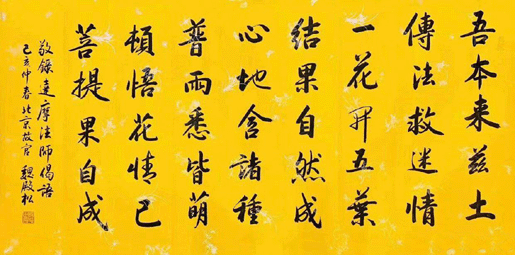 吾本来兹土
傳法救迷情
一花开五葉
结果自然成
心地含諸種
普雨悉皆萌
頓悟花情已
菩提果自成
敬錄達摩法师偈语
己亥仲春北京故宫 魏殿松